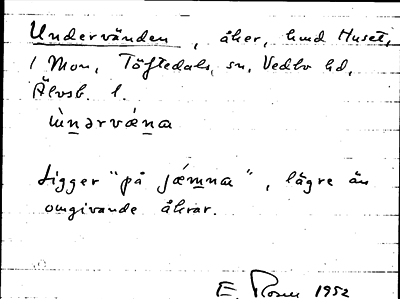 Undervänden, åker, hmd Huset,
1 Mon, Töftedals sn, Vedbo hd,
Älvsb. l.
ùnərvǽna
Ligger "på jǽmna", lägre än
omgivande åkrar.
E. Rosen 1952